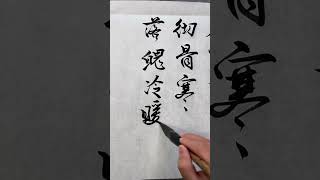 彻骨寒
落魄冷暖